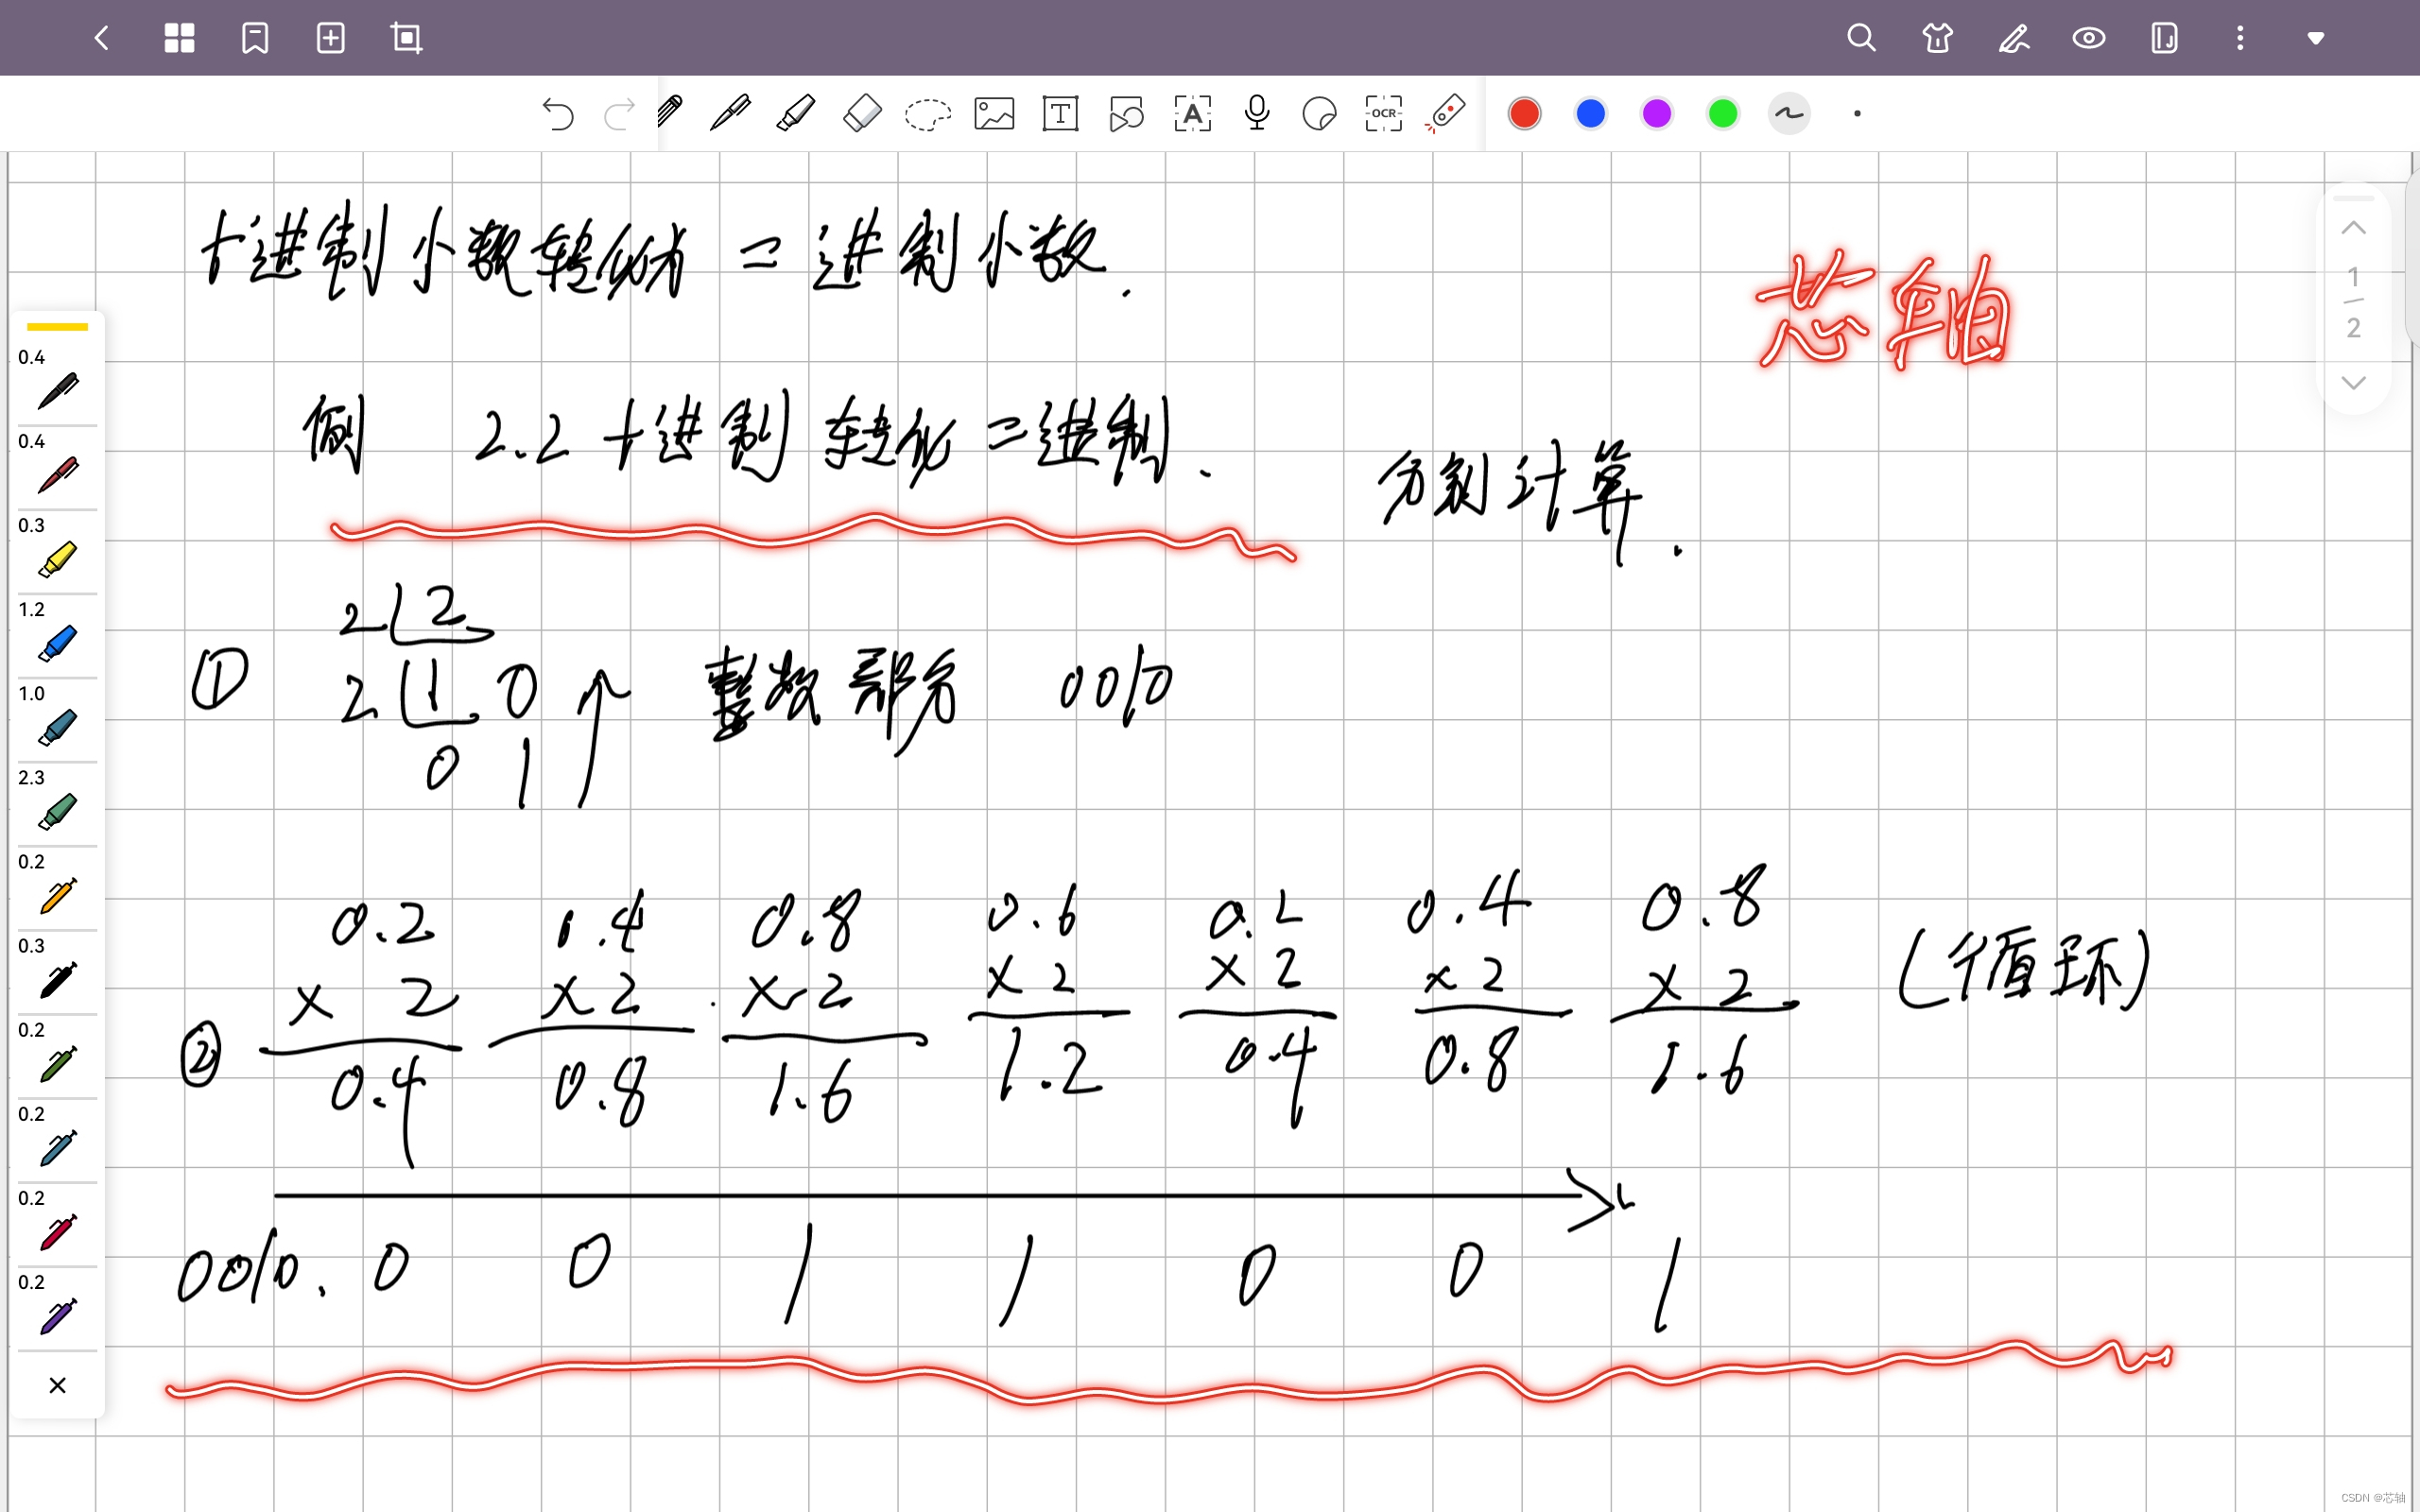 十进制小数转化为二进制小数.
芯轴
1
2
例 2.2 十进制转化二进制.
分别计算.
0.4
0.4
0.3
1.2
1.0
2.3
0.2
0.3
0.2
0.2
0.2
0.2
OCR
2 2
① 2 1 0 整数部分 0010
0 1
0.2 0.4 0.8 0.6 0.2 0.4 0.8 (循环)
× 2 × 2 × 2 × 2 × 2 × 2 × 2
② 0.4 0.8 1.6 1.2 0.4 0.8 1.6
0010. 0 0 1 1 0 0 1
CSDN @芯轴